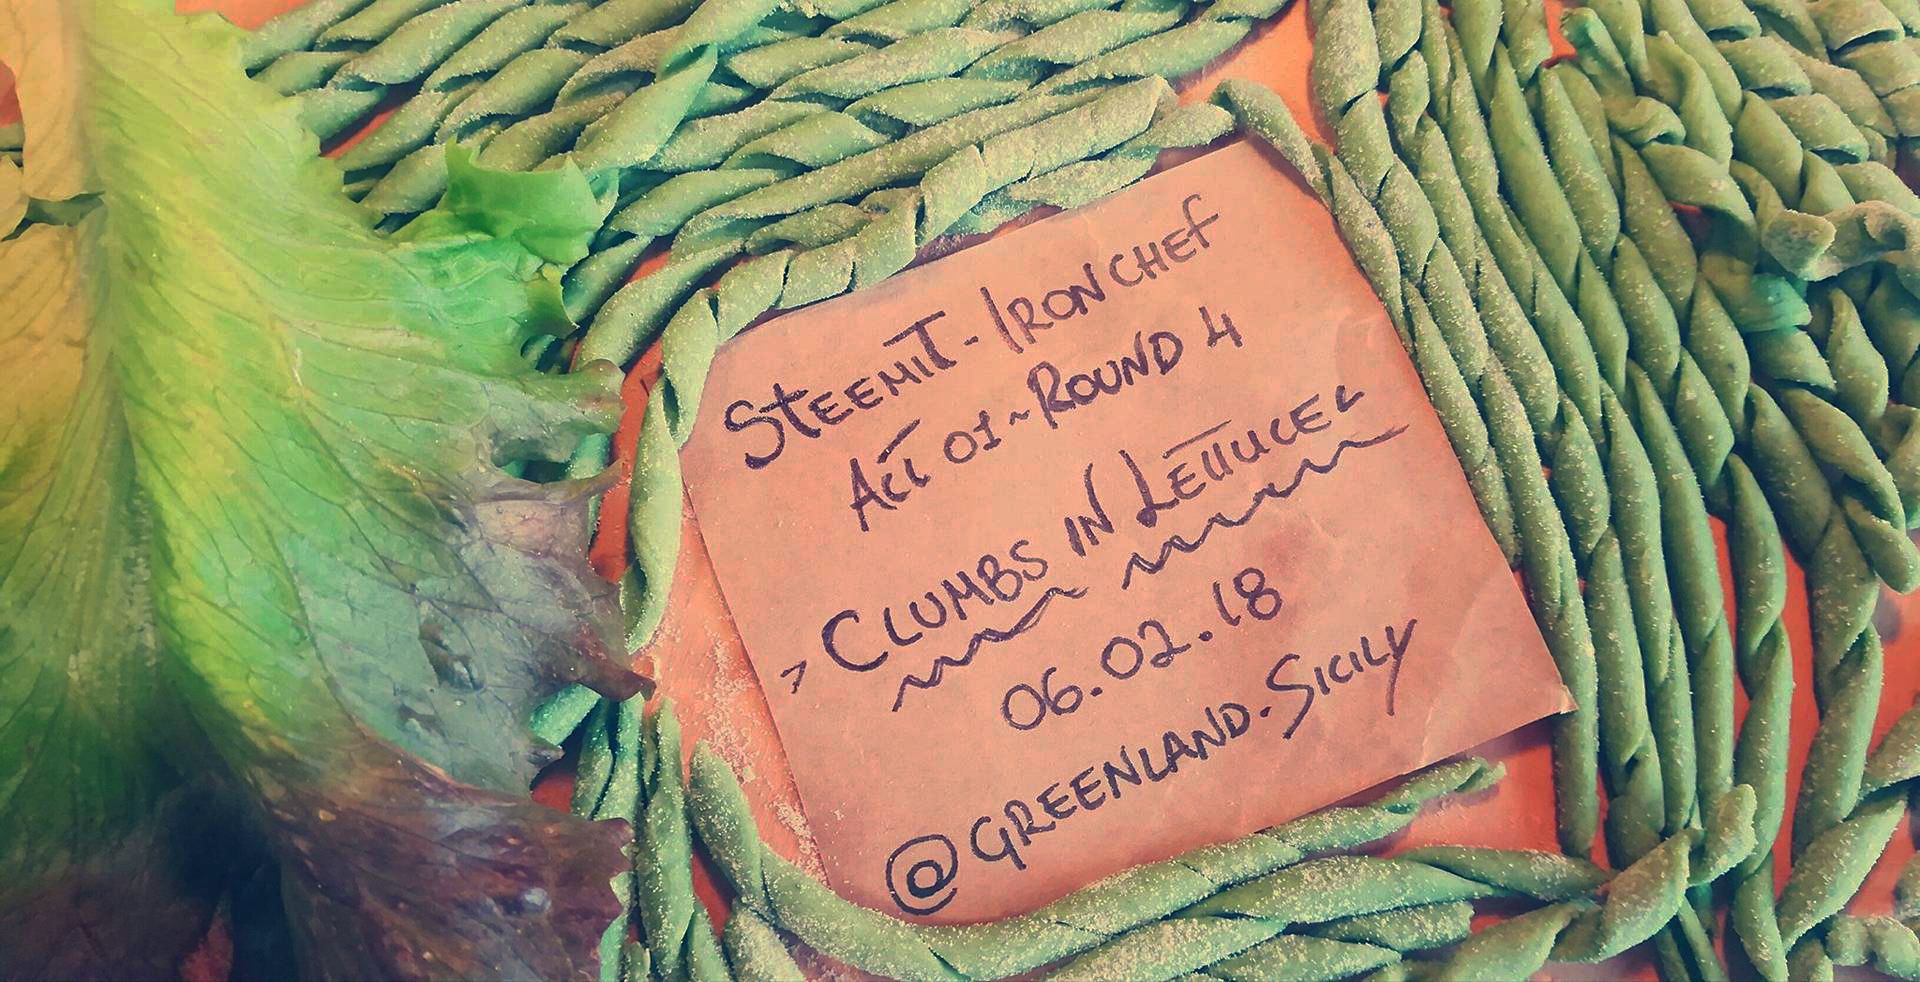 STEEMIT - IRON CHEF
ACT 01 ~ ROUND 4
> CLUMBS IN LETTUCE <
06.02.18
@GREENLAND.SICILY